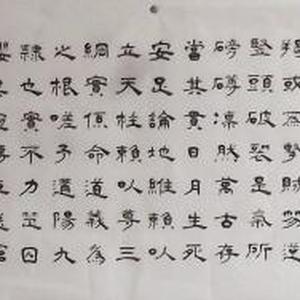 羯或為擊賊笏逆
豎頭破裂是氣所
磅礴凜烈萬古存
當其貫日月生死
安足論地維賴以
立天柱賴以尊三
綱實係命道義為
之根嗟予遘陽九
隸也實不力楚囚
纓其冠傳車送窮